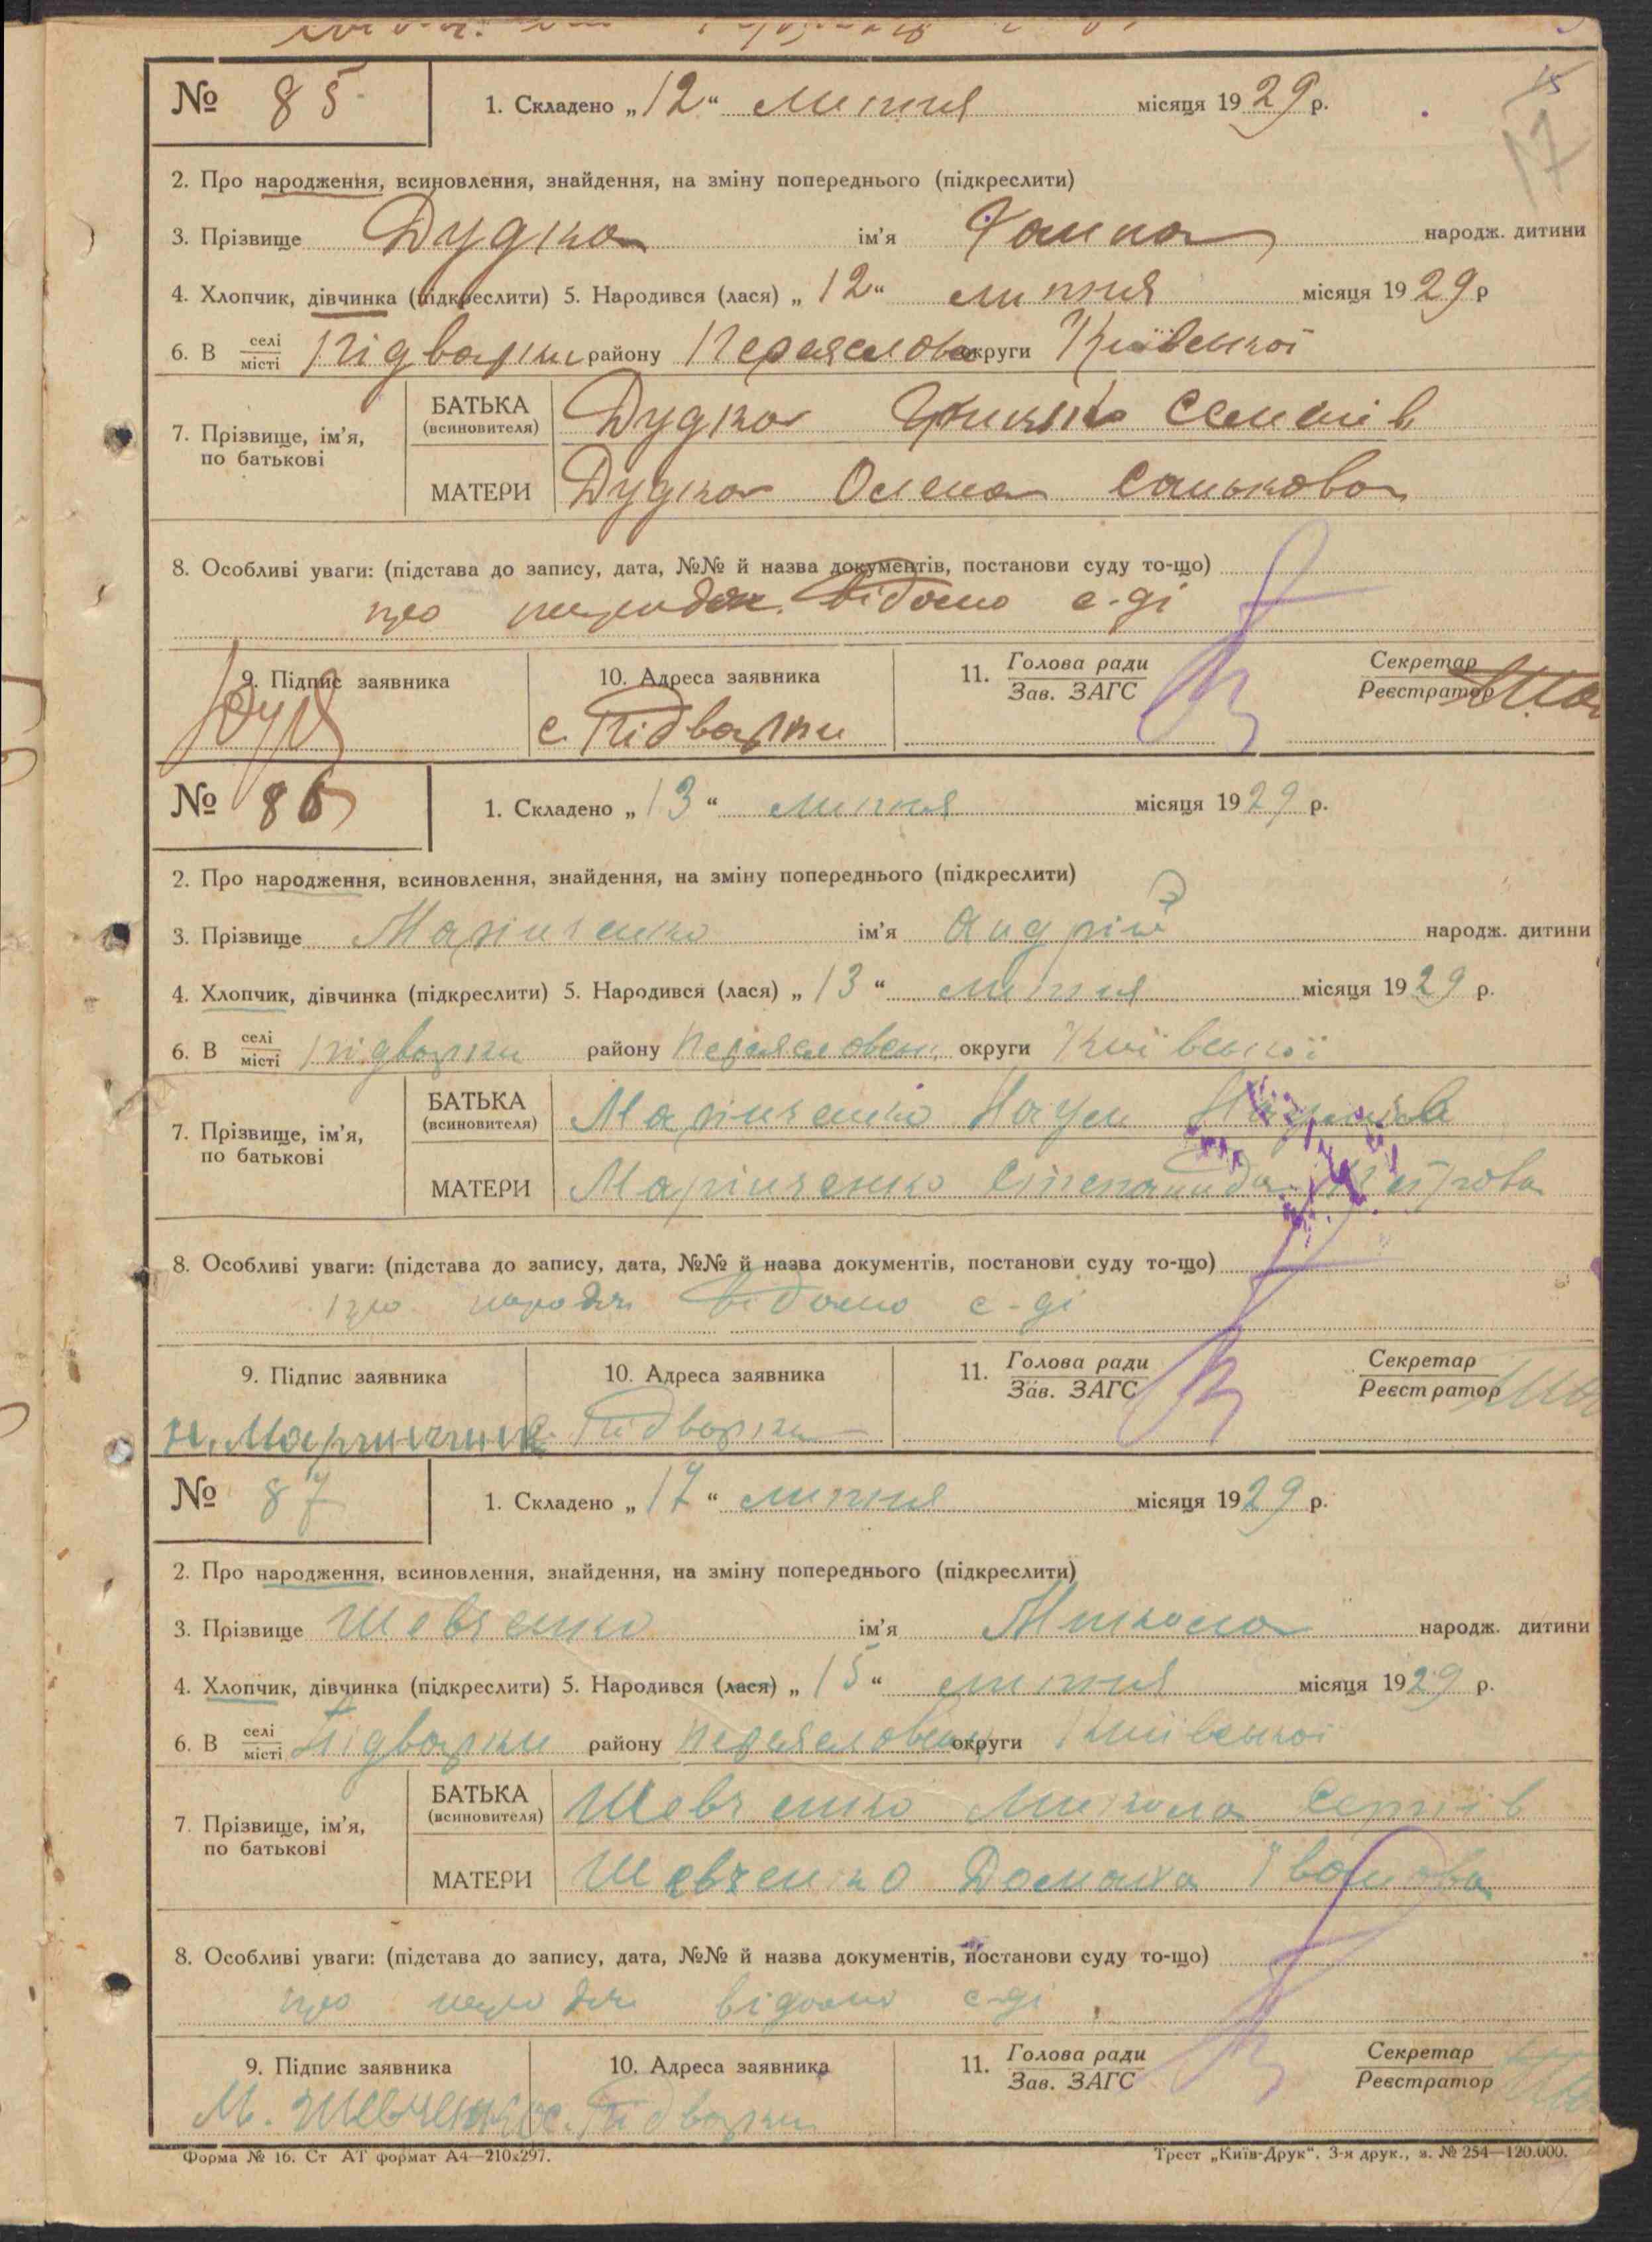 15
17
№ 85
1. Складено „12“ липня місяця 1929 р.
2. Про народження, всиновлення, знайдення, на зміну попереднього (підкреслити)
3. Прізвище Дудка ім'я Ганна народж. дитини
4. Хлопчик, дівчинка (підкреслити) 5. Народився (лася) „12“ липня місяця 1929 р
6. В селі місті Підварки району Переяславс округи Київської
7. Прізвище, ім'я, по батькові
БАТЬКА (всиновителя) Дудка Семенів
МАТЕРИ Дудка Олена Санькова
8. Особливі уваги: (підстава до запису, дата, №№ й назва документів, постанови суду то-що)
про народж. відомо с-ді
9. Підпис заявника 10. Адреса заявника 11. Голова ради Зав. ЗАГС Секретар Реєстратор
с. Підварки
№ 86
1. Складено „13“ липня місяця 1929 р.
2. Про народження, всиновлення, знайдення, на зміну попереднього (підкреслити)
3. Прізвище Марінченко ім'я Андрій народж. дитини
4. Хлопчик, дівчинка (підкреслити) 5. Народився (лася) „13“ липня місяця 1929 р.
6. В селі місті Підварки району Переяславськ округи Київської
7. Прізвище, ім'я, по батькові
БАТЬКА (всиновителя) Марінченко Наум
МАТЕРИ Марінченко Степанида Петрова
8. Особливі уваги: (підстава до запису, дата, №№ й назва документів, постанови суду то-що)
про народж відомо с-ді
9. Підпис заявника 10. Адреса заявника 11. Голова ради Зав. ЗАГС Секретар Реєстратор
с. Підварки
№ 87
1. Складено „17“ липня місяця 1929 р.
2. Про народження, всиновлення, знайдення, на зміну попереднього (підкреслити)
3. Прізвище Шевченко ім'я Микола народж. дитини
4. Хлопчик, дівчинка (підкреслити) 5. Народився (лася) „15“ липня місяця 1929 р.
6. В селі місті Підварки району Переяславськ округи Київської
7. Прізвище, ім'я, по батькові
БАТЬКА (всиновителя) Шевченко Микола Сергіїв
МАТЕРИ Шевченко Домаха Іванова
8. Особливі уваги: (підстава до запису, дата, №№ й назва документів, постанови суду то-що)
про народж відомо с-ді
9. Підпис заявника 10. Адреса заявника 11. Голова ради Зав. ЗАГС Секретар Реєстратор
М. Шевченко с. Підварки
Форма № 16. Ст АТ формат А4—210x297. Трест „Київ-Друк“. 3-я друк., з. № 254—120.000.